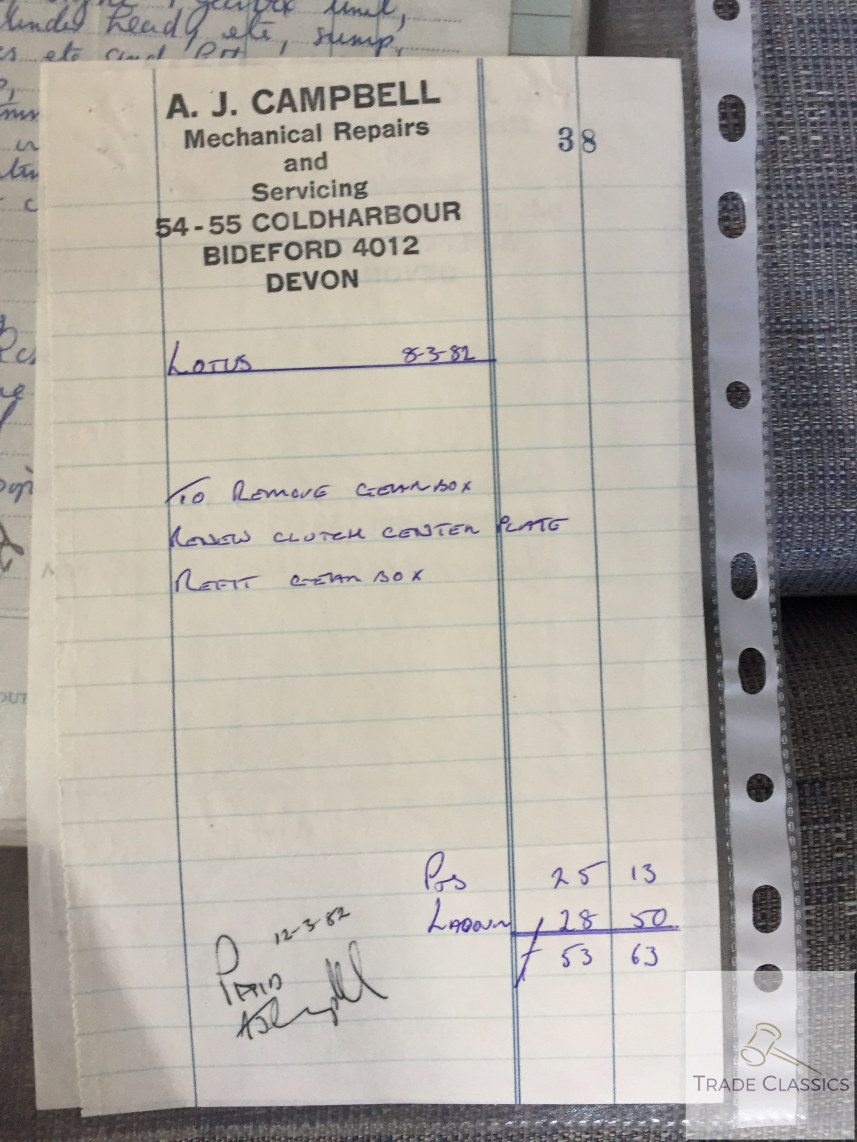 linder heads etc, sump,
etc and
A. J. CAMPBELL
Mechanical Repairs
and
Servicing
54-55 COLDHARBOUR
BIDEFORD 4012
DEVON
38
LOTUS 8-3-82
TO REMOVE GEARBOX
RENEW CLUTCH CENTER PLATE
REFIT GEAR BOX
PTS 25 13
LABOUR 28 50
£ 53 63
PAID 12-3-82
AJCampbell
OUT
TRADE CLASSICS